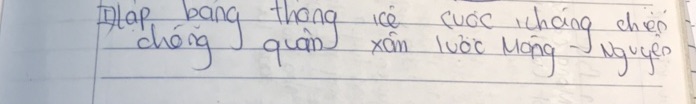 I) lập bảng thống kê cuộc kháng chiến
chống quân xâm lược Mông - Nguyên